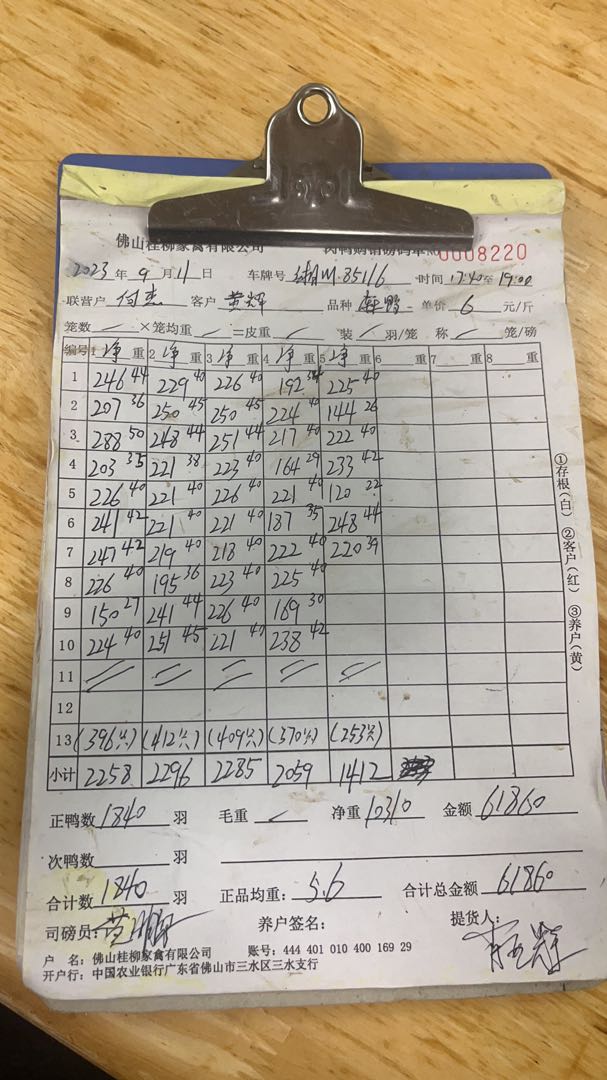 佛山桂柳家禽有限公司 肉鸭购销磅码单 No 0008220
2023年9月11日 车牌号 85116 时间 17:40至19:00
联营户 何杰 客户 黄辉 品种 鸭 单价 6 元/斤
笼数 ×笼均重 =皮重 装 羽/笼 称 笼/磅
编号 1 净 重 2 净 重 3 净 重 4 净 重 5 净 重 6 重 7 重 8 重
1 246 44 229 40 226 40 192 34 225 40
2 207 36 250 45 250 45 224 40 144 26
3 288 50 248 44 251 44 217 40 222 40
4 203 35 221 38 223 40 164 29 233 42
5 226 40 221 40 226 40 221 40 120 22
6 241 42 221 40 221 40 187 35 248 44
7 247 42 219 40 218 40 222 40 220 39
8 226 40 195 36 223 40 225 40
9 150 27 241 44 226 40 169 30
10 224 40 251 45 221 40 238 42
11
12
13 (396只) (412只) (409只) (370只) (253只)
小计 2258 2296 2285 2059 1412
正鸭数 1840 羽 毛重 净重 10310 金额 61860
次鸭数 羽
合计数 1840 羽 正品均重: 5.6 合计总金额 61860
司磅员: 养户签名: 提货人:
户 名: 佛山桂柳家禽有限公司 账号: 444 401 010 400 169 29
开户行: 中国农业银行广东省佛山市三水区三水支行
①存根(白) ②客户(红) ③养户(黄)